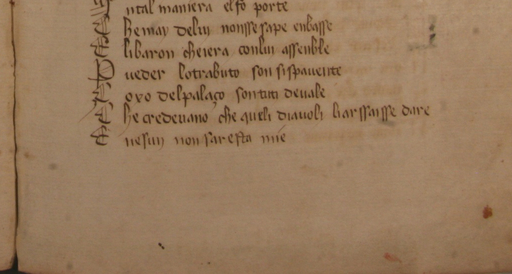 ntal maniera elfo porte
he may deluy nonsse sape enbasse
li baron che iera conluy assenble
ueder lo trabuto son si spauente
oxo del palaço son tuti deuale
he credeuano che queli diauoli li arssaisse dare
nesun non sa resta mie